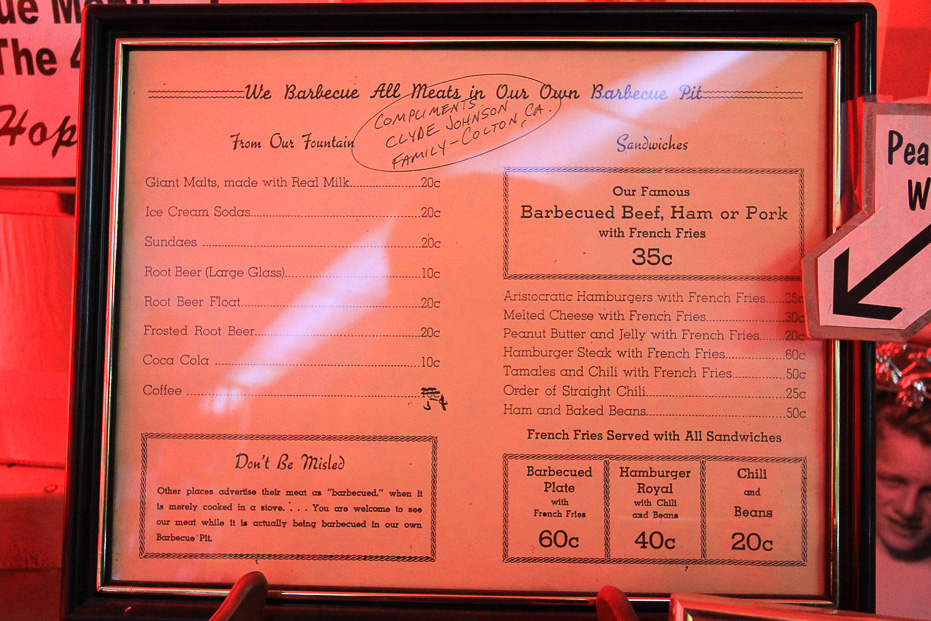 The 4
Hop
We Barbecue All Meats in Our Own Barbecue Pit
COMPLIMENTS
CLYDE JOHNSON
FAMILY - COLTON, CA.
From Our Fountain
Giant Malts, made with Real Milk 20c
Ice Cream Sodas 20c
Sundaes 20c
Root Beer (Large Glass) 10c
Root Beer Float 20c
Frosted Root Beer 20c
Coca Cola 10c
Coffee 5¢
Don't Be Misled
Other places advertise their meat as "barbecued," when it
is merely cooked in a stove. . . . You are welcome to see
our meat while it is actually being barbecued in our own
Barbecue Pit.
Sandwiches
Our Famous
Barbecued Beef, Ham or Pork
with French Fries
35c
Aristocratic Hamburgers with French Fries 25c
Melted Cheese with French Fries 30c
Peanut Butter and Jelly with French Fries 20c
Hamburger Steak with French Fries 60c
Tamales and Chili with French Fries 50c
Order of Straight Chili 25c
Ham and Baked Beans 50c
French Fries Served with All Sandwiches
Barbecued
Plate
with
French Fries
60c
Hamburger
Royal
with Chili
and Beans
40c
Chili
and
Beans
20c
Pea
W